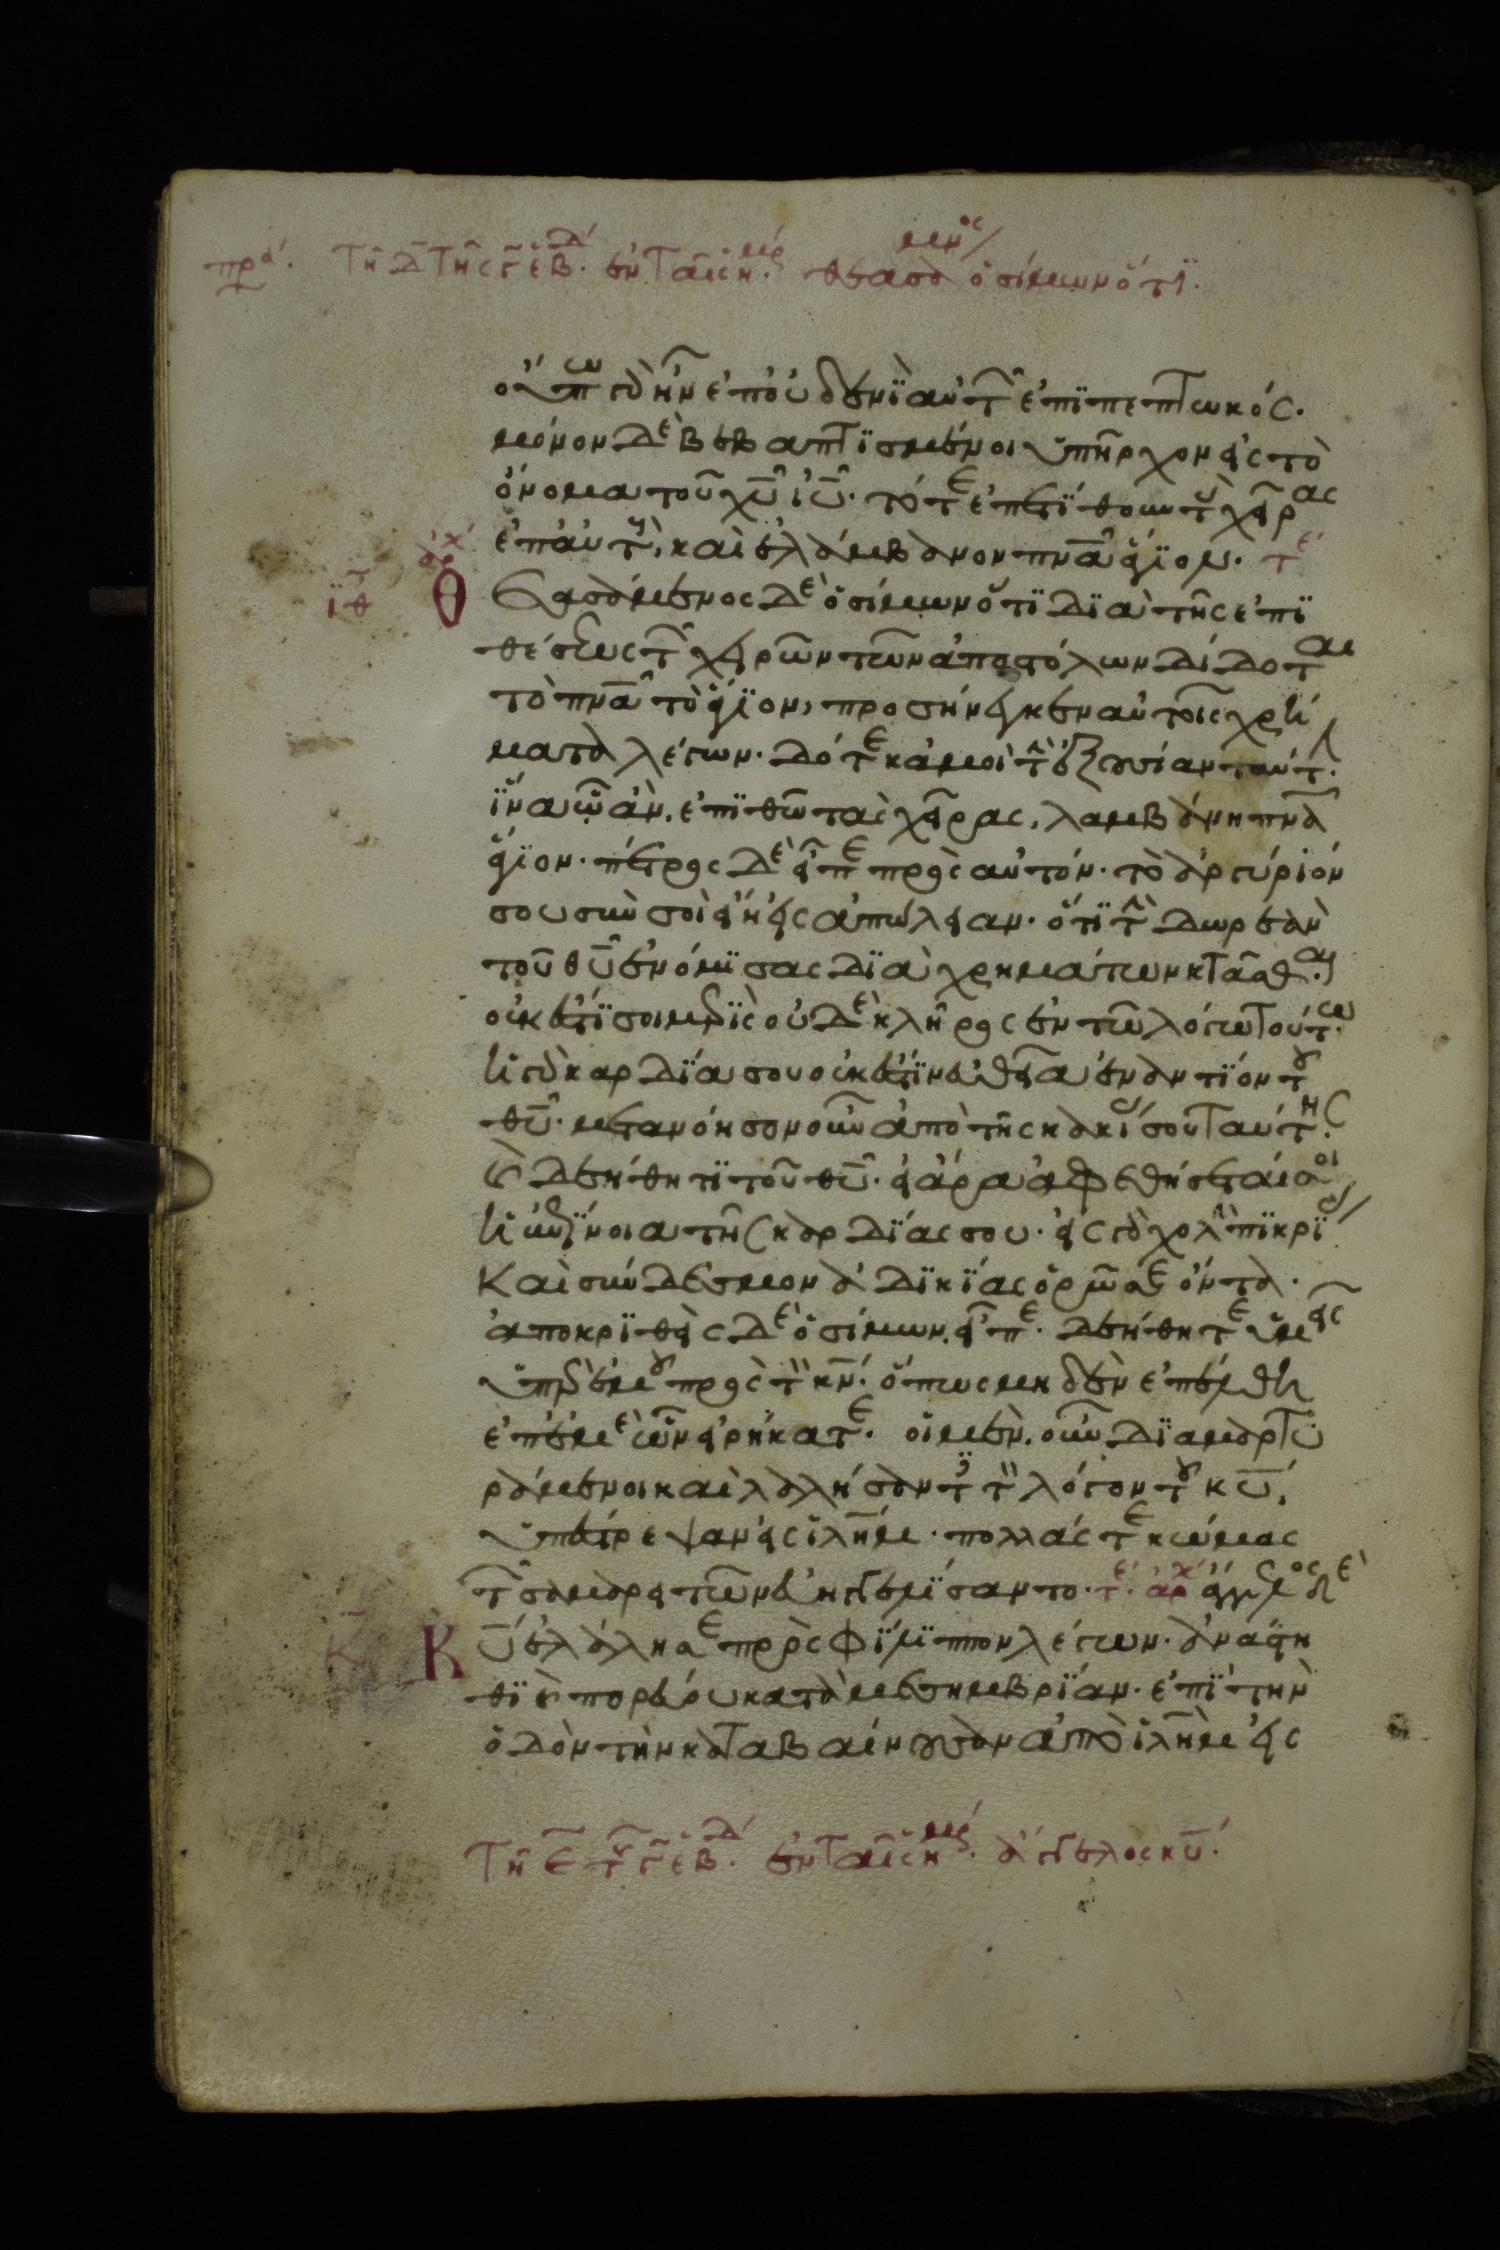 πρα τῆ δ τῆς γ ἑβδ. ἐν ταῖς ημερ. θεασαμενος ὁ σίμων ὅτϊ.
οὔπω γὰρ ἦν ἐπ' οὐδενϊ αὐτῶν ἐπϊπεπτωκός.
μόνον δὲ βεβαπτϊσμένοι ὑπῆρχον εἰς τὸ
ὄνομα τοῦ χυ ιυ. τότε ἐπετίθουν τὰς χεῖρας
ἐπ' αὐτοὺς, καὶ ἐλάμβανον πνα ἅγϊον. τε
ϊθ αρχ Θεασάμενος δὲ ὁ σίμων ὅτϊ δϊὰ τῆς ἐπϊ
θέσεως τῶν χειρῶν τῶν ἀποστόλων δίδοται
τὸ πνα τὸ ἅγϊον, προσήνεγκεν αὐτοῖς χρή
ματα λέγων. δότε κἀμοὶ τὴν ἐξουσίαν ταύτην.
ἵνα ὧ ἂν ἐπϊθῶ τὰς χεῖρας, λαμβάνη πνα
ἅγϊον. πέτρος δὲ εἶπε πρὸς αὐτόν. τὸ ἀργύρϊόν
σου σὺν σοὶ εἴη εἰς ἀπώλειαν. ὅτϊ τὴν δωρεὰν
τοῦ θυ ἐνόμϊσας δϊὰ χρημάτων κτᾶσθαι.
οὐκ ἔστϊ σοι μερὶς οὐδὲ κλῆρος ἐν τῶ λόγω τούτω.
ἡ γὰρ καρδϊα σου οὐκ ἔστϊν εὐθεῖα ἐναντϊον τοῦ
θυ. μετανόησον οὖν ἀπὸ τῆς κακίας σου ταύτης.
καὶ δεήθητϊ τοῦ θυ. εἰ ἄρα ἀφεθήσεταί σοι
ἡ ἐπίνοια τῆς καρδϊας σου. εἰς γὰρ χολὴν πϊκρϊας
καὶ σύνδεσμον ἀδϊκϊας ὁρῶ σε ὄντα.
ἀποκρϊθεὶς δὲ ὁ σίμων εἶπε. δεήθητε ὑμεῖς
ὑπὲρ ἐμοῦ πρὸς τὸν κν. ὅπως μηδὲν ἐπέλθη
ἐπ' ἐμὲ ὧν εἰρήκατε. οἱ μὲν οὖν δϊαμαρτυ
ράμενοι καὶ λαλήσαντες τὸν λόγον τοῦ κυ,
ὑπέστρεψαν εἰς ιλημ. πολλάς τε κώμας
τῶν σαμαρειτῶν εὐηγγελϊσαντο. τε. αρχ ἄγγελος δὲ
Κ Κυ ἐλάλησε πρὸς φϊλϊππον λέγων. ἀνάστη
θϊ καὶ πορεύου κατὰ μεσημβρϊαν. ἐπϊ τὴν
ὁδὸν τὴν καταβαίνουσαν ἀπὸ ιλημ εἰς
τῆ ε τῆς γ ἑβδ. ἐν ταῖς ημερ. ἄγγελος κυ.